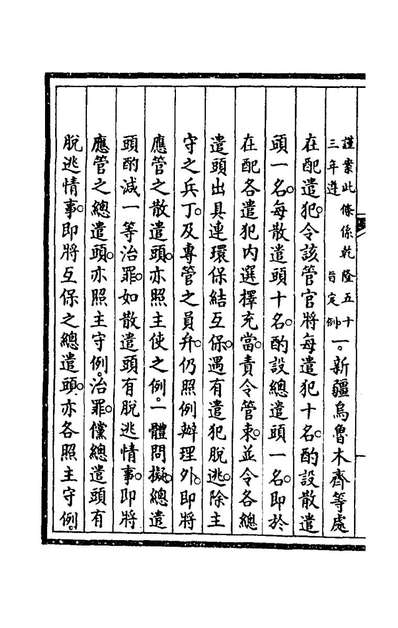 謹案此條係乾隆五十
三年遵　旨定例
一。新疆烏魯木齊等處
在配遣犯。令該管官將每遣犯十名。酌設散遣
頭一名。每散遣頭十名。酌設總遣頭一名。即於
在配各遣犯內選擇充當。責令管束。並令各總
遣頭出具連環保結互保。遇有遣犯脫逃。除主
守之兵丁。及專管之員弁。仍照例辦理外。即將
應管之散遣頭。亦照主使之例。一體問擬。總遣
頭酌減一等治罪。如散遣頭有脫逃情事。即將
應管之總遣頭。亦照主守例。治罪。儻總遣頭有
脫逃情事。即將互保之總遣頭。亦各照主守例。